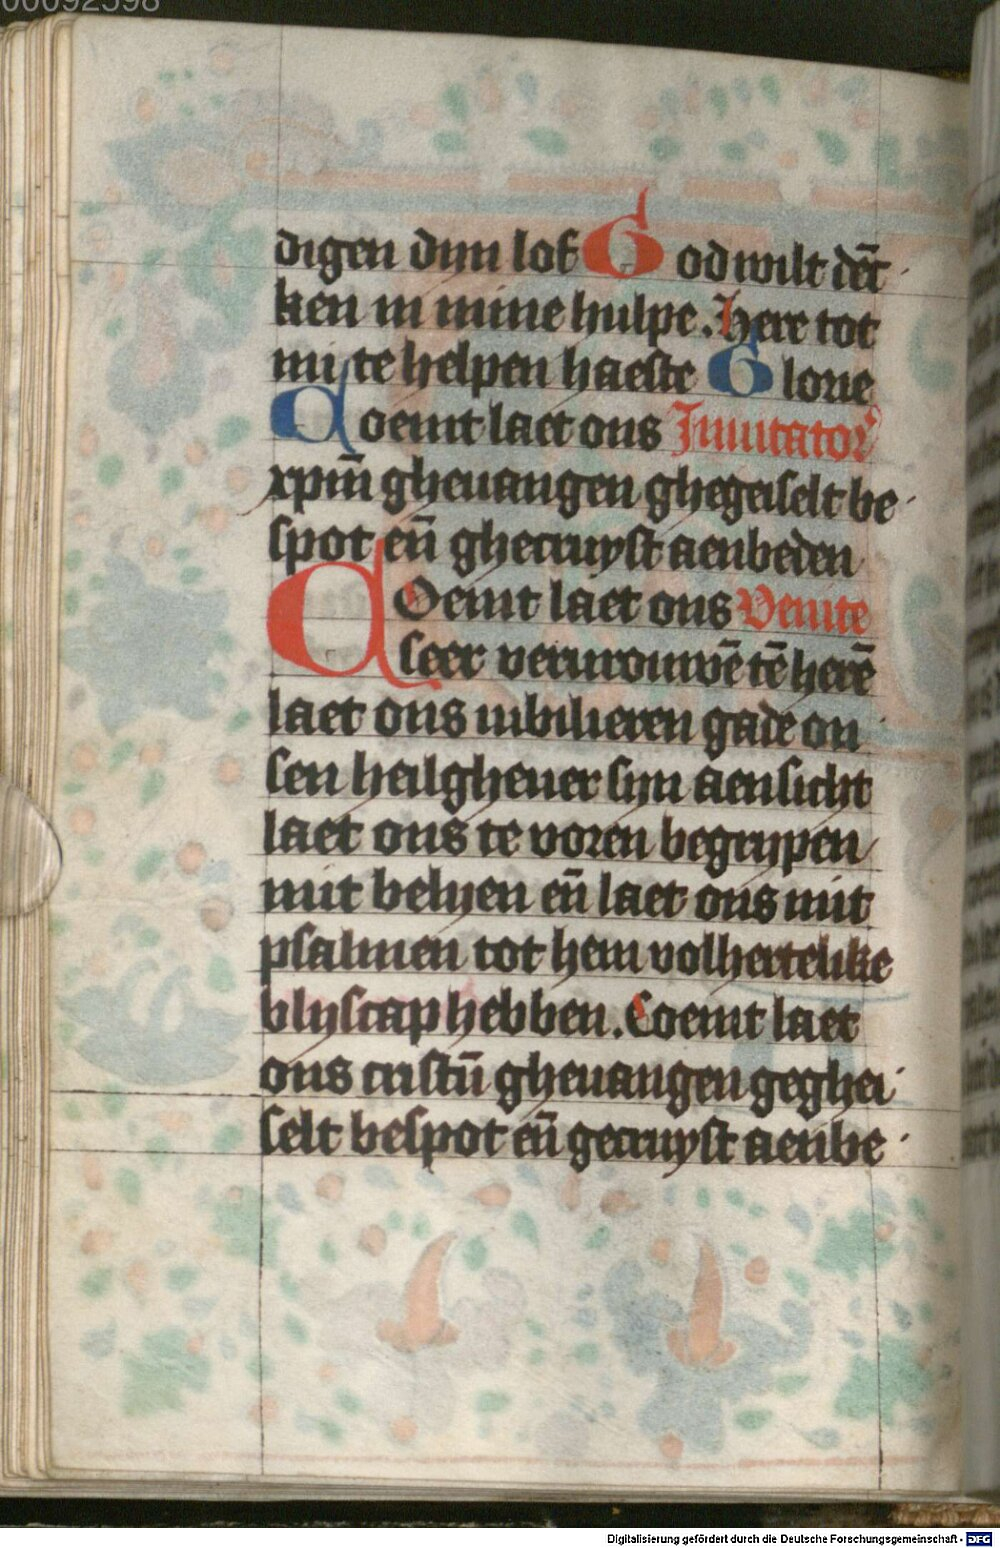 00092598
digen dijn lof God wilt dēc
ken in mine hulpe. Here tot
mi te helpen haeste Glorie
Coemt laet ons Inuitator
xpm̄ gheuangen ghegeiselt be
spot eñ ghecruyst aenbeden
Coemt laet ons Venite
seer vervrouwē tē herē
laet ons iubilieren gade on
sen heilgheuer sijn aensicht
laet ons te voren begripen
mit belyen eñ laet ons mit
psalmen tot hem volhertelike
blijscap hebben. Coemt laet
ons cristū gheuangen geghei
selt bespot eñ gecruyst aenbe
Digitalisierung gefördert durch die Deutsche Forschungsgemeinschaft - DFG